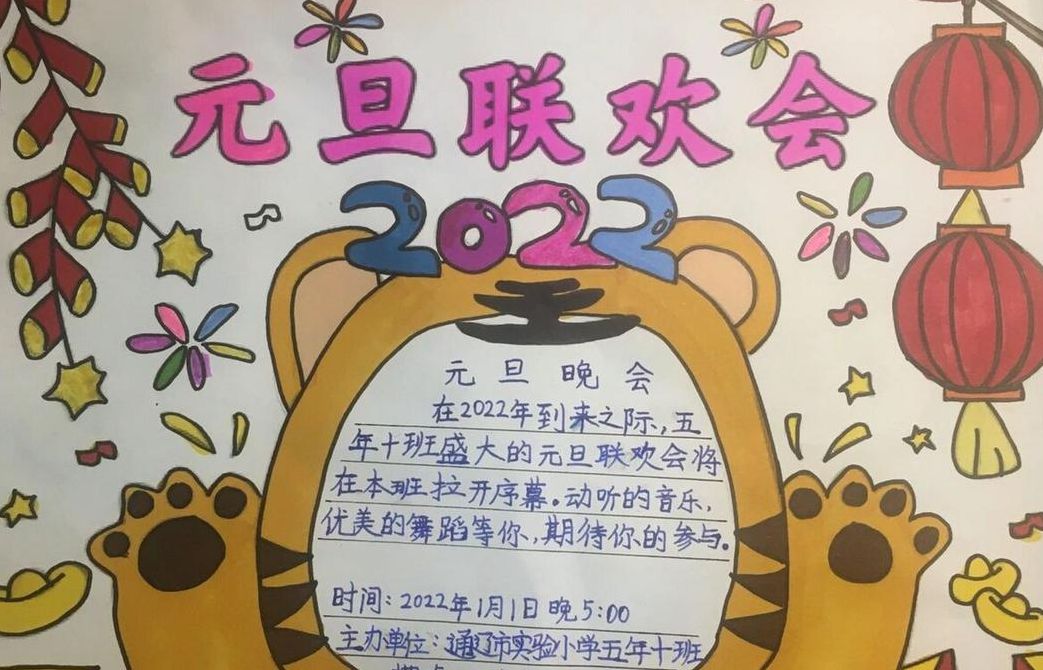 元旦联欢会
2022
元旦晚会
在2022年到来之际,五
年十班盛大的元旦联欢会将
在本班拉开序幕。动听的音乐,
优美的舞蹈等你,期待你的参与。
时间:2022年1月1日晚5:00
主办单位:通辽市实验小学五年十班